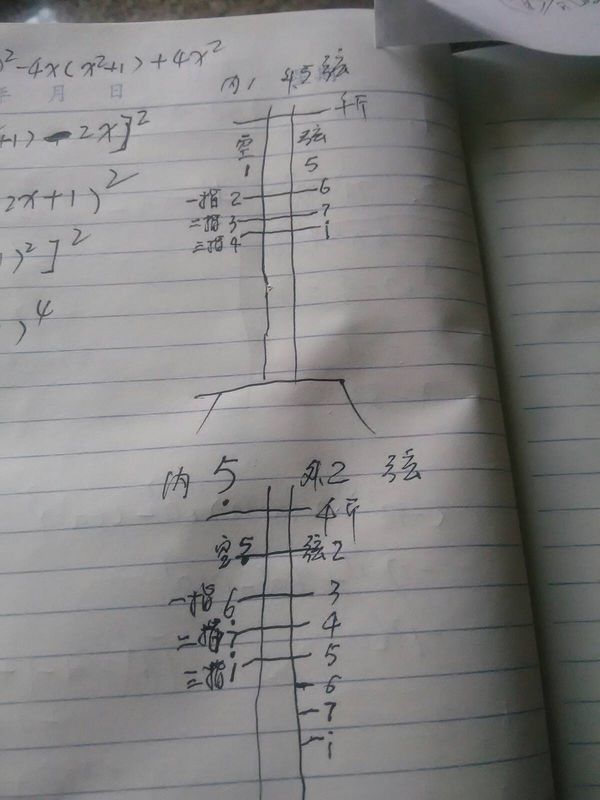 )²-4x(x²+1)+4x²
年 月 日
+1)-2x]²
2x+1)²
)²]²
)⁴
内1 外5弦
千斤
空 弦
1 5
一指2 6
二指3 7
三指4 i
内5 外2 弦
千斤
空5 弦2
一指6 3
二指7 4
三指i 5
6
7
i